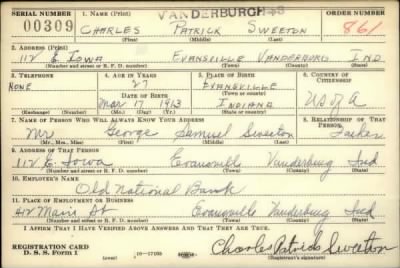 SERIAL NUMBER 1. NAME (Print) VANDERBURGH ORDER NUMBER
00309 CHARLES PATRICK SWEETON 861
(First) (Middle) (Last)
2. ADDRESS (Print)
112 E. IOWA EVANSVILLE VANDERBURG IND
(Number and street or R. F. D. number) (Town) (County) (State)
3. TELEPHONE 4. AGE IN YEARS 5. PLACE OF BIRTH 6. COUNTRY OF CITIZENSHIP
NONE 27 EVANSVILLE
DATE OF BIRTH (Town or county)
Mar 17 1913 INDIANA U S of A
(Exchange) (Number) (Mo.) (Day) (Yr.) (State or country)
7. NAME OF PERSON WHO WILL ALWAYS KNOW YOUR ADDRESS 8. RELATIONSHIP OF THAT PERSON
Mr George Samuel Sweeton Father
(Mr., Mrs., Miss) (First) (Middle) (Last)
9. ADDRESS OF THAT PERSON
112 E. Iowa Evansville Vanderburg Ind
(Number and street or R. F. D. number) (Town) (County) (State)
10. EMPLOYER'S NAME
Old National Bank
11. PLACE OF EMPLOYMENT OR BUSINESS
Main St Evansville Vanderburg Ind
(Number and street or R. F. D. number) (Town) (County) (State)
I AFFIRM THAT I HAVE VERIFIED ABOVE ANSWERS AND THAT THEY ARE TRUE.
REGISTRATION CARD
D. S. S. Form 1 16-17105 Charles Patrick Sweeton
(Registrant's signature)